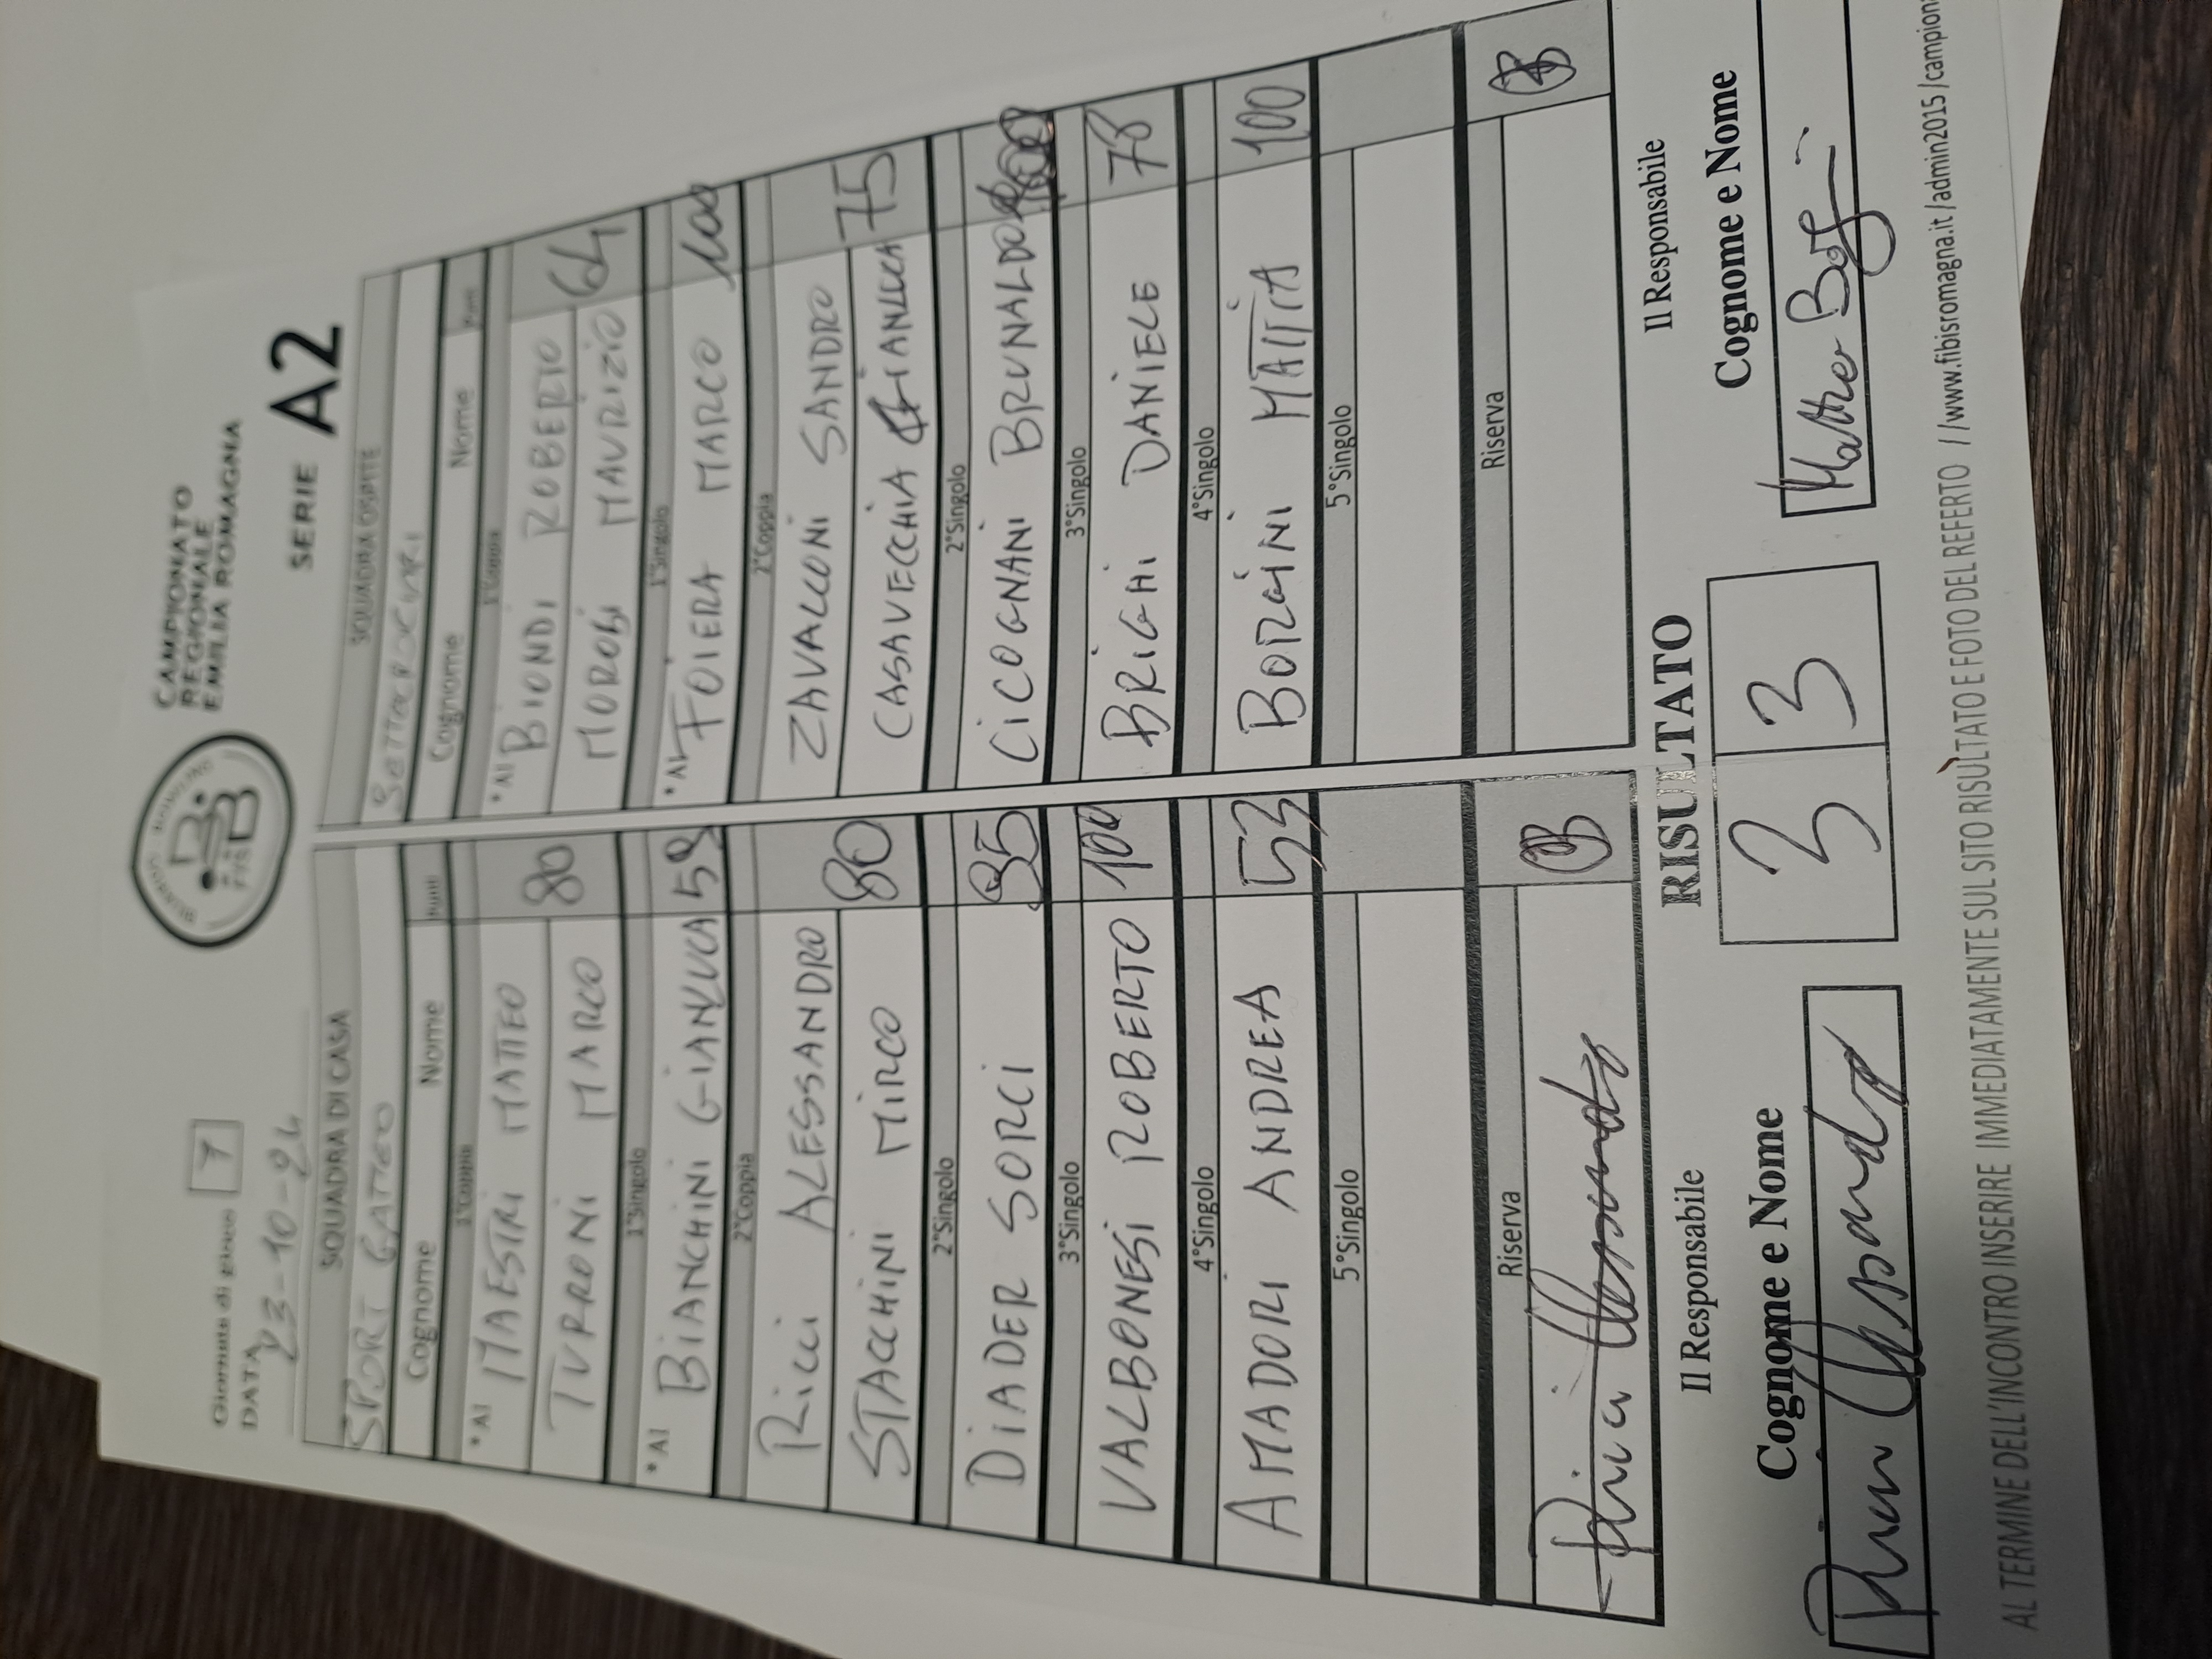 CAMPIONATO
REGIONALE
EMILIA ROMAGNA
Giornata di gioco 7
DATA 23-10-24
SERIE A2
SQUADRA DI CASA
SPORT GATEO
Cognome Nome Punti
1°Coppia
*AI MAESTRI MATTEO
TURRONI MARCO 80
1°Singolo
*AI BIANCHINI GIANLUCA 59
2°Coppia
RICCI ALESSANDRO
STACCHINI MIRCO 80
2°Singolo
DIADER SORCI 85
3°Singolo
VALBONESI ROBERTO 100
4°Singolo
AMADORI ANDREA 53
5°Singolo
Riserva
3
SQUADRA OSPITE
SETTECROCIARI
Cognome Nome Punti
1°Coppia
*AI BIONDI ROBERTO
MOROBI MAURIZIO 64
1°Singolo
*AI FOIERA MARCO 100
2°Coppia
ZAVALLONI SANDRO
CASAVECCHIA GIANLUCA 75
2°Singolo
CICOGNANI BRUNALDO 100
3°Singolo
BRIGHI DANIELE 78
4°Singolo
BORGINI MATTIA 100
5°Singolo
Riserva
3
RISULTATO
3 3
Il Responsabile
Cognome e Nome
Il Responsabile
Cognome e Nome
AL TERMINE DELL'INCONTRO INSERIRE IMMEDIATAMENTE SUL SITO RISULTATO E FOTO DEL REFERTO //www.fibisromagna.it/admin2015/campion